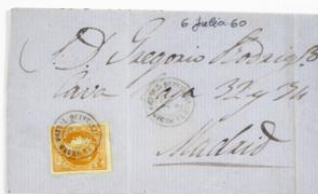 6 Julio 60
D. Gregorio Rodrig
Cava Baja 32 y 34
Madrid